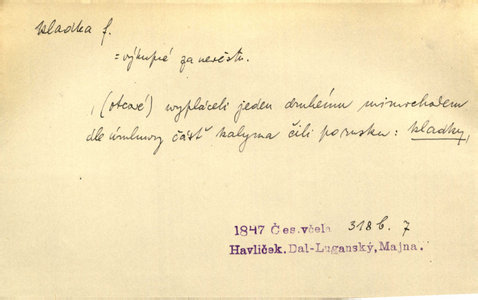 kladka f.
= výkupné za nevěstu.
„(otcové) vypláceli jeden druhému mimochodem
dle úmluvy část kalyma čili po rusku: kladky,
1847 Čes.včela 318b. 7
Havlíček.Dal-Luganský,Majna.